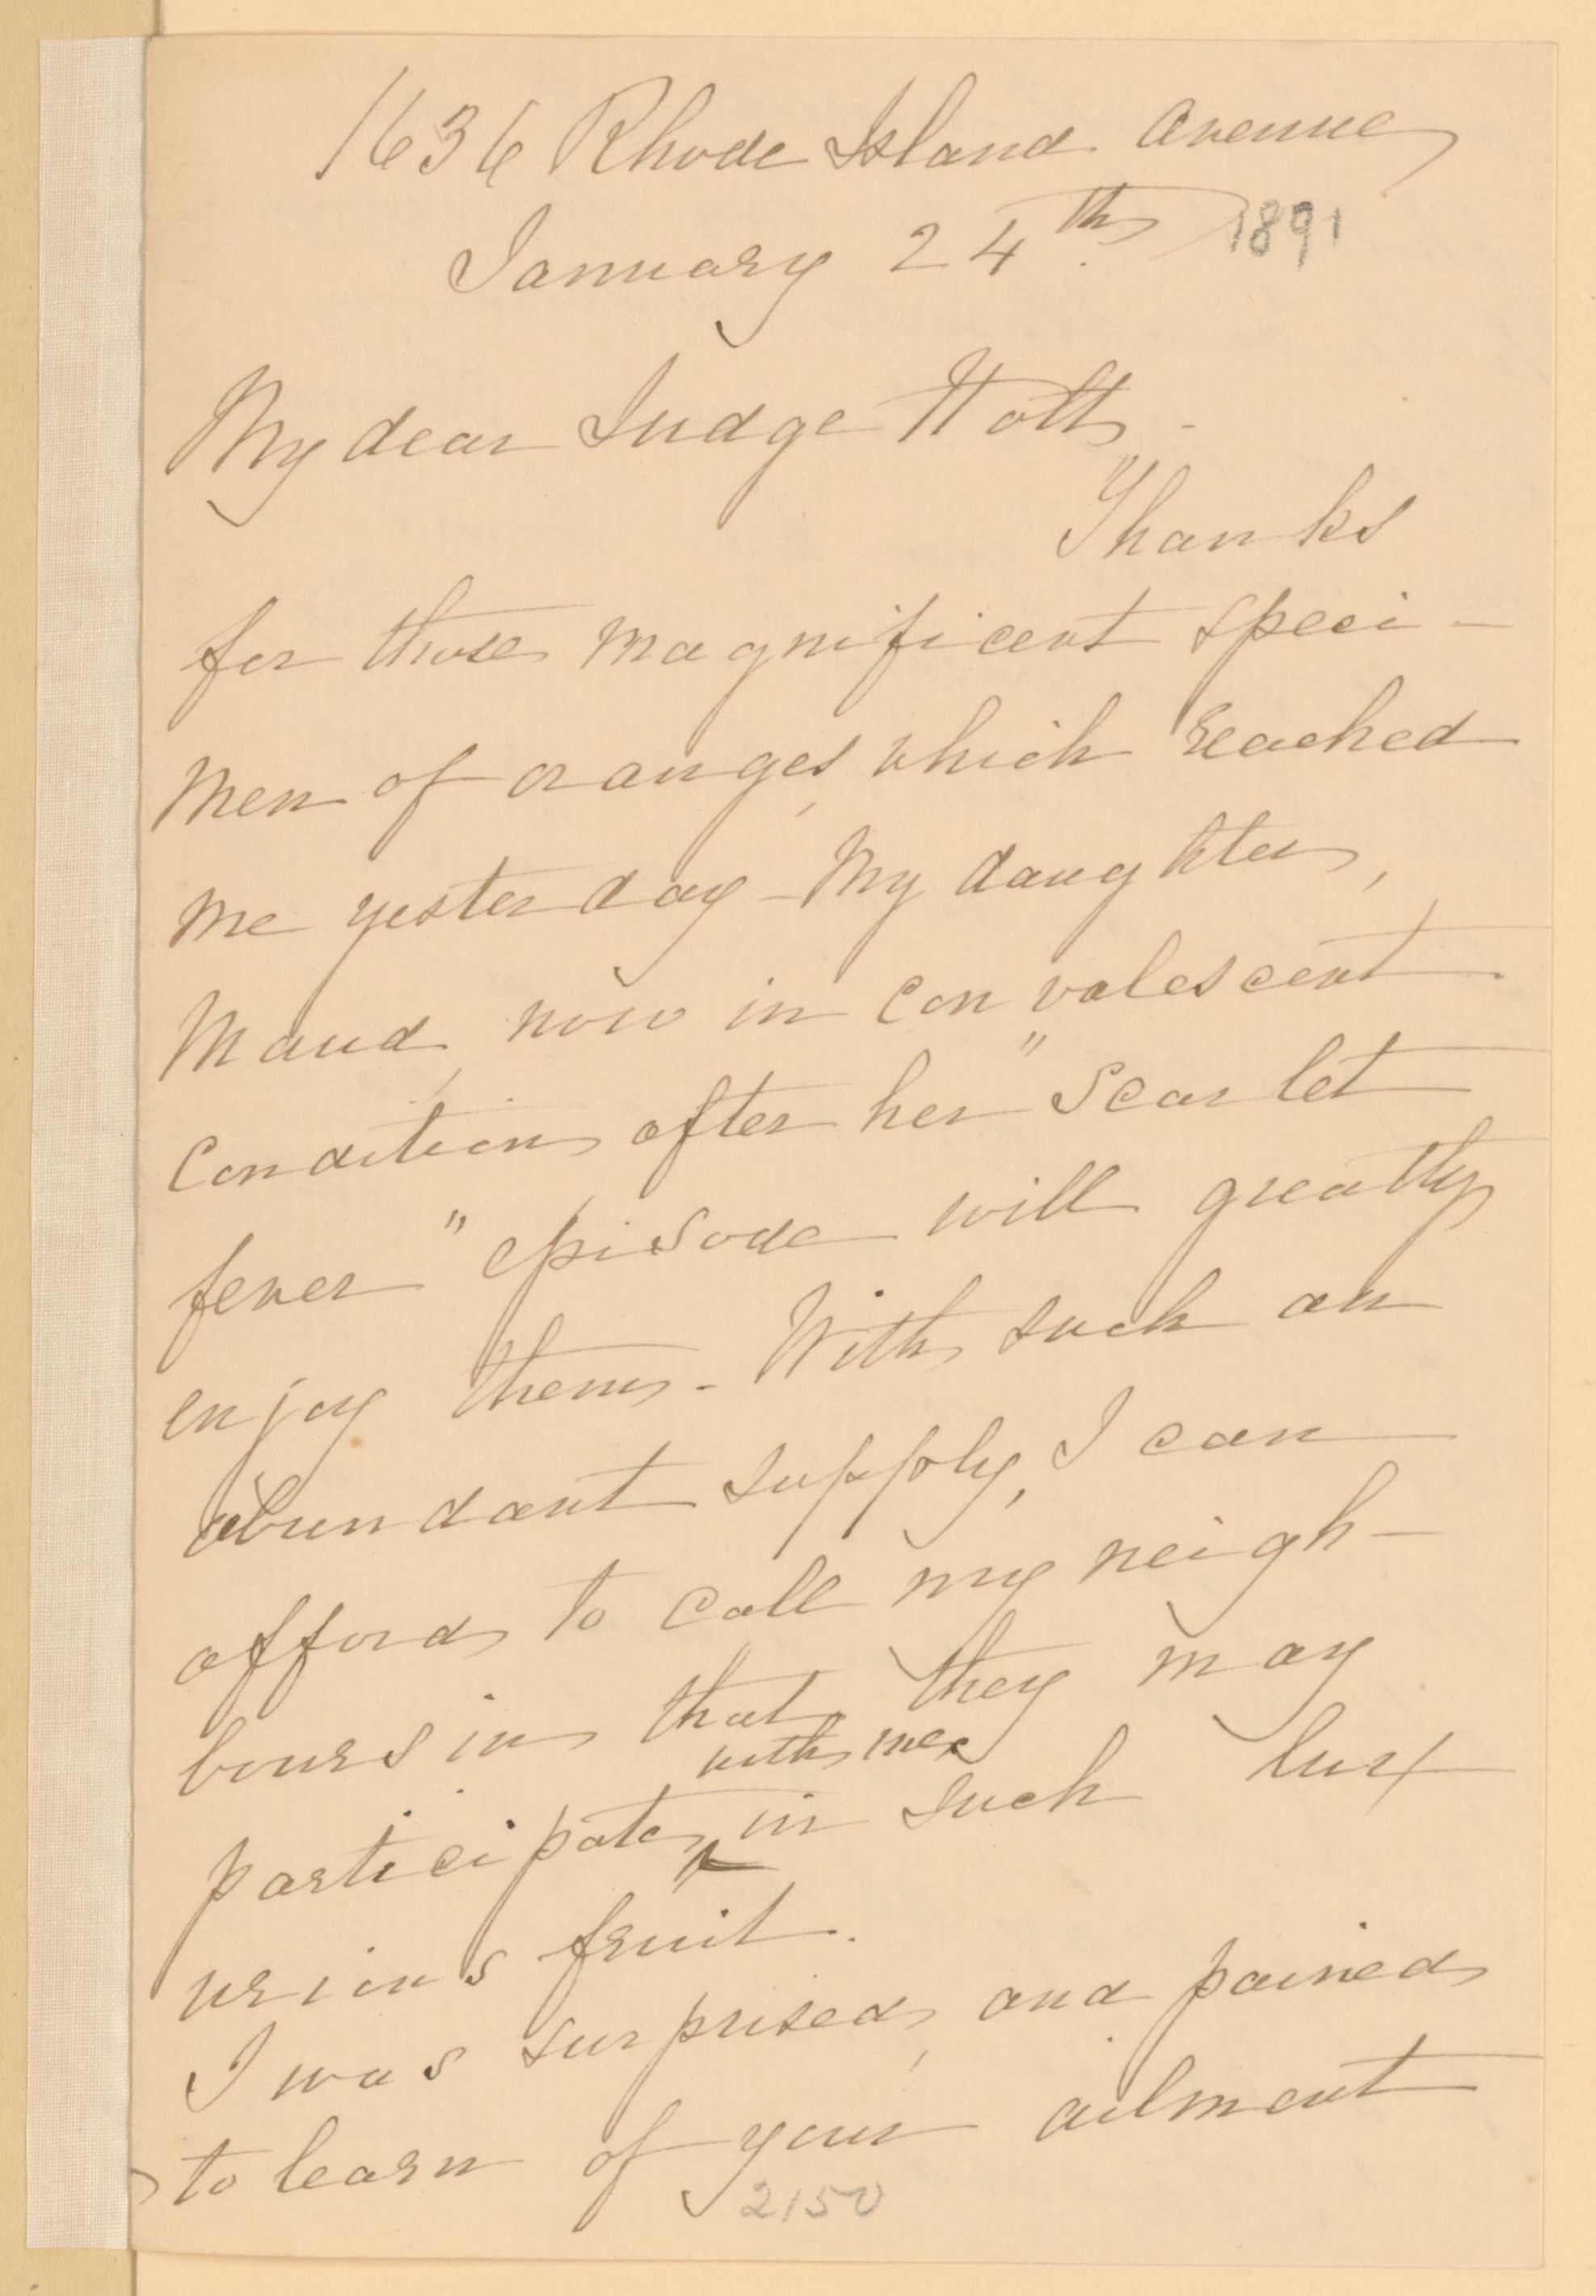 1636 Rhode Island Avenue
January 24th. 1891
My dear Judge Holt -
Thanks
for those magnificent speci-
men of oranges, which reached
me yesterday - My daughter,
Maud, now in convalescent
condition after her "scarlet
fever" episode will greatly
enjoy them. With such an
abundant supply, I can
afford to call my neigh-
bours in that they may
with me
participate in such lux
urious fruit.
I was surprised, and pained
to learn of your ailment
2150